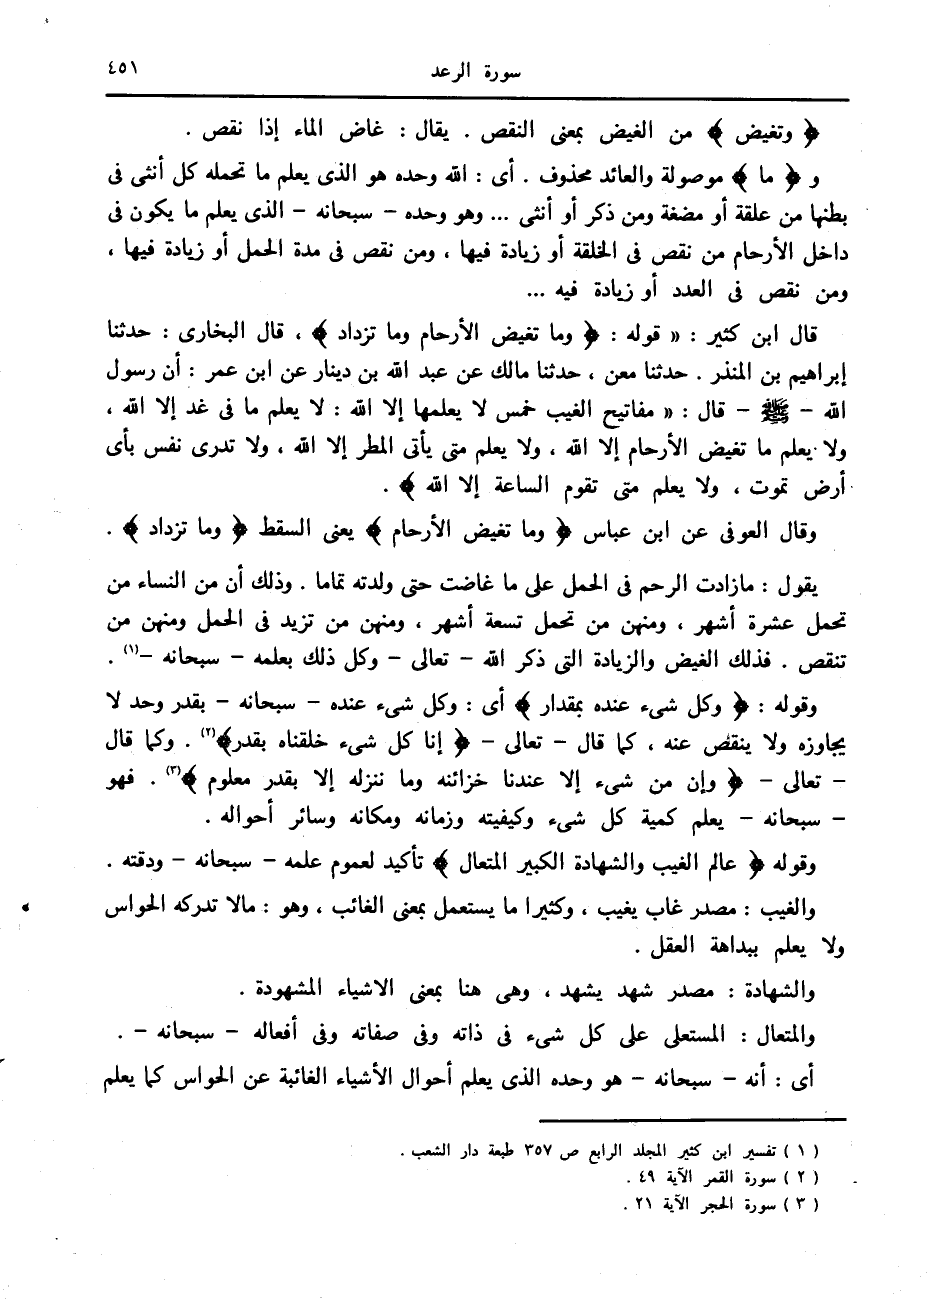 سورة الرعد ٤٥١
﴿ وتغيض ﴾ من الغيض بمعنى النقص . يقال : غاض الماء إذا نقص .
و ﴿ ما ﴾ موصولة والعائد محذوف . أى : الله وحده هو الذى يعلم ما تحمله كل أنثى فى
بطنها من علقة أو مضغة ومن ذكر أو أنثى ... وهو وحده – سبحانه – الذى يعلم ما يكون فى
داخل الأرحام من نقص فى الخلقة أو زيادة فيها ، ومن نقص فى مدة الحمل أو زيادة فيها ،
ومن نقص فى العدد أو زيادة فيه ...
قال ابن كثير : « قوله : ﴿ وما تغيض الأرحام وما تزداد ﴾ ، قال البخارى : حدثنا
إبراهيم بن المنذر . حدثنا معن ، حدثنا مالك عن عبد الله بن دينار عن ابن عمر : أن رسول
الله – ﷺ – قال : « مفاتيح الغيب خمس لا يعلمها إلا الله : لا يعلم ما فى غد إلا الله ،
ولا يعلم ما تغيض الأرحام إلا الله ، ولا يعلم متى يأتى المطر إلا الله ، ولا تدرى نفس بأى
أرض تموت ، ولا يعلم متى تقوم الساعة إلا الله ﴾ .
وقال العوفى عن ابن عباس ﴿ وما تغيض الأرحام ﴾ يعنى السقط ﴿ وما تزداد ﴾ .
يقول : مازادت الرحم فى الحمل على ما غاضت حتى ولدته تماما . وذلك أن من النساء من
تحمل عشرة أشهر ، ومنهن من تحمل تسعة أشهر ، ومنهن من تزيد فى الحمل ومنهن من
تنقص . فذلك الغيض والزيادة التى ذكر الله – تعالى – وكل ذلك بعلمه – سبحانه –(١) .
وقوله : ﴿ وكل شىء عنده بمقدار ﴾ أى : وكل شىء عنده – سبحانه – بقدر وحد لا
يجاوزه ولا ينقص عنه ، كما قال – تعالى – ﴿ إنا كل شىء خلقناه بقدر﴾(٢) . وكما قال
– تعالى – ﴿ وإن من شىء إلا عندنا خزائنه وما ننزله إلا بقدر معلوم ﴾(٣) . فهو
– سبحانه – يعلم كمية كل شىء وكيفيته وزمانه ومكانه وسائر أحواله .
وقوله ﴿ عالم الغيب والشهادة الكبير المتعال ﴾ تأكيد لعموم علمه – سبحانه – ودقته .
والغيب : مصدر غاب يغيب ، وكثيرا ما يستعمل بمعنى الغائب ، وهو : مالا تدركه الحواس
ولا يعلم ببداهة العقل .
والشهادة : مصدر شهد يشهد ، وهى هنا بمعنى الاشياء المشهودة .
والمتعال : المستعلى على كل شىء فى ذاته وفى صفاته وفى أفعاله – سبحانه – .
أى : أنه – سبحانه – هو وحده الذى يعلم أحوال الأشياء الغائبة عن الحواس كما يعلم
( ١ ) تفسير ابن كثير المجلد الرابع ص ٣٥٧ طبعة دار الشعب .
( ٢ ) سورة القمر الآية ٤٩ .
( ٣ ) سورة الحجر الآية ٢١ .